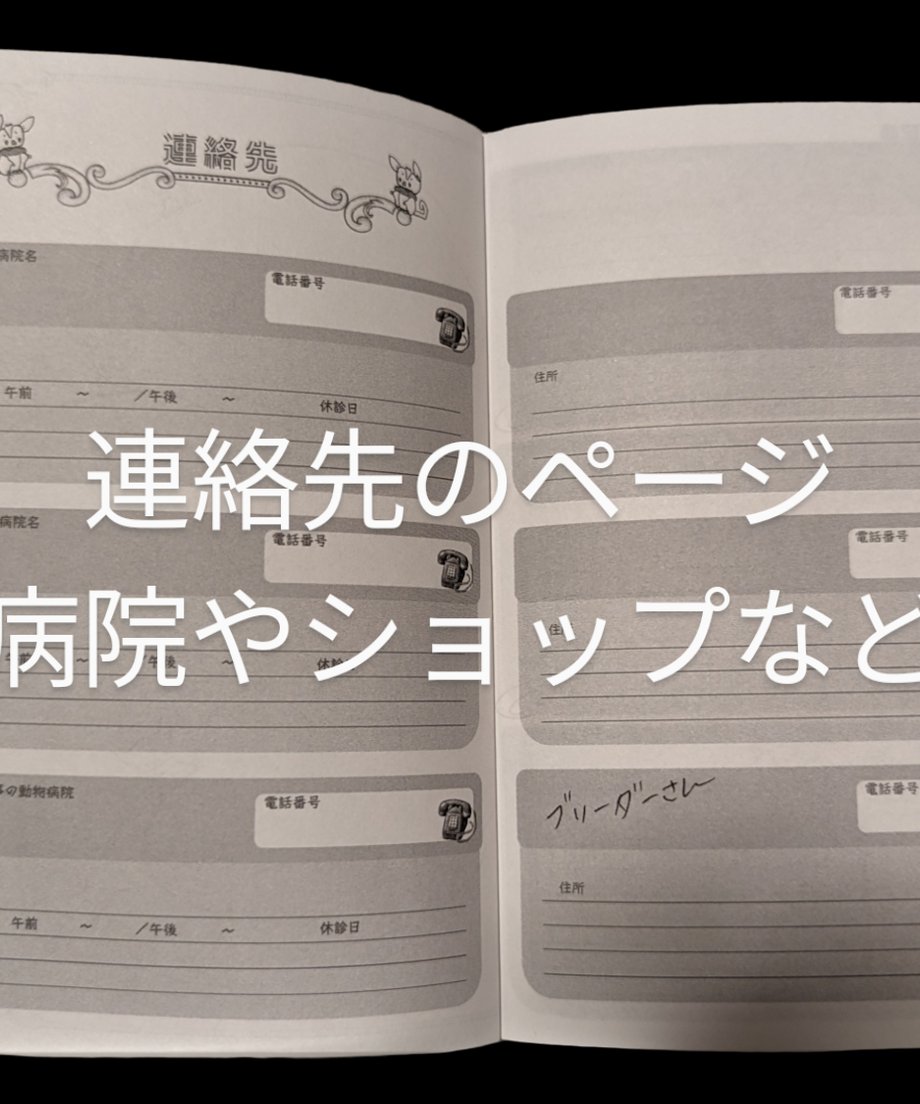 連絡先
病院名
電話番号
午前 ～ ／午後 ～ 休診日
病院名
電話番号
午前 ～ ／午後 ～ 休診
の動物病院
電話番号
午前 ～ ／午後 ～ 休診日
電話番号
住所
電話番号
住
ブリーダーさん
電話番号
住所
連絡先のページ
病院やショップなど